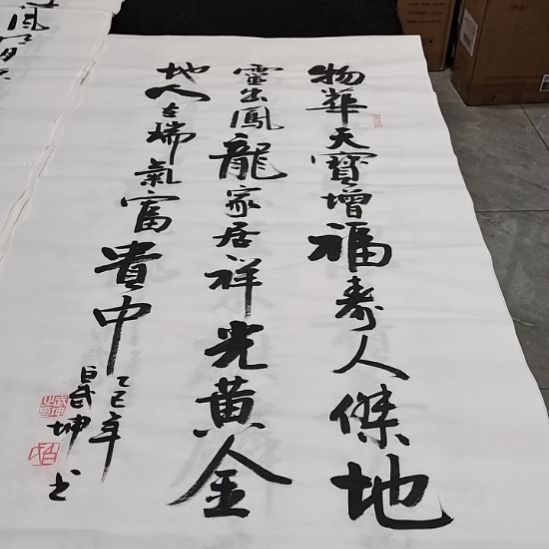 物華天寶增福壽人傑地
靈出鳳龍家居祥光黄金
地人在瑞氣富貴中
乙巳年
坤书